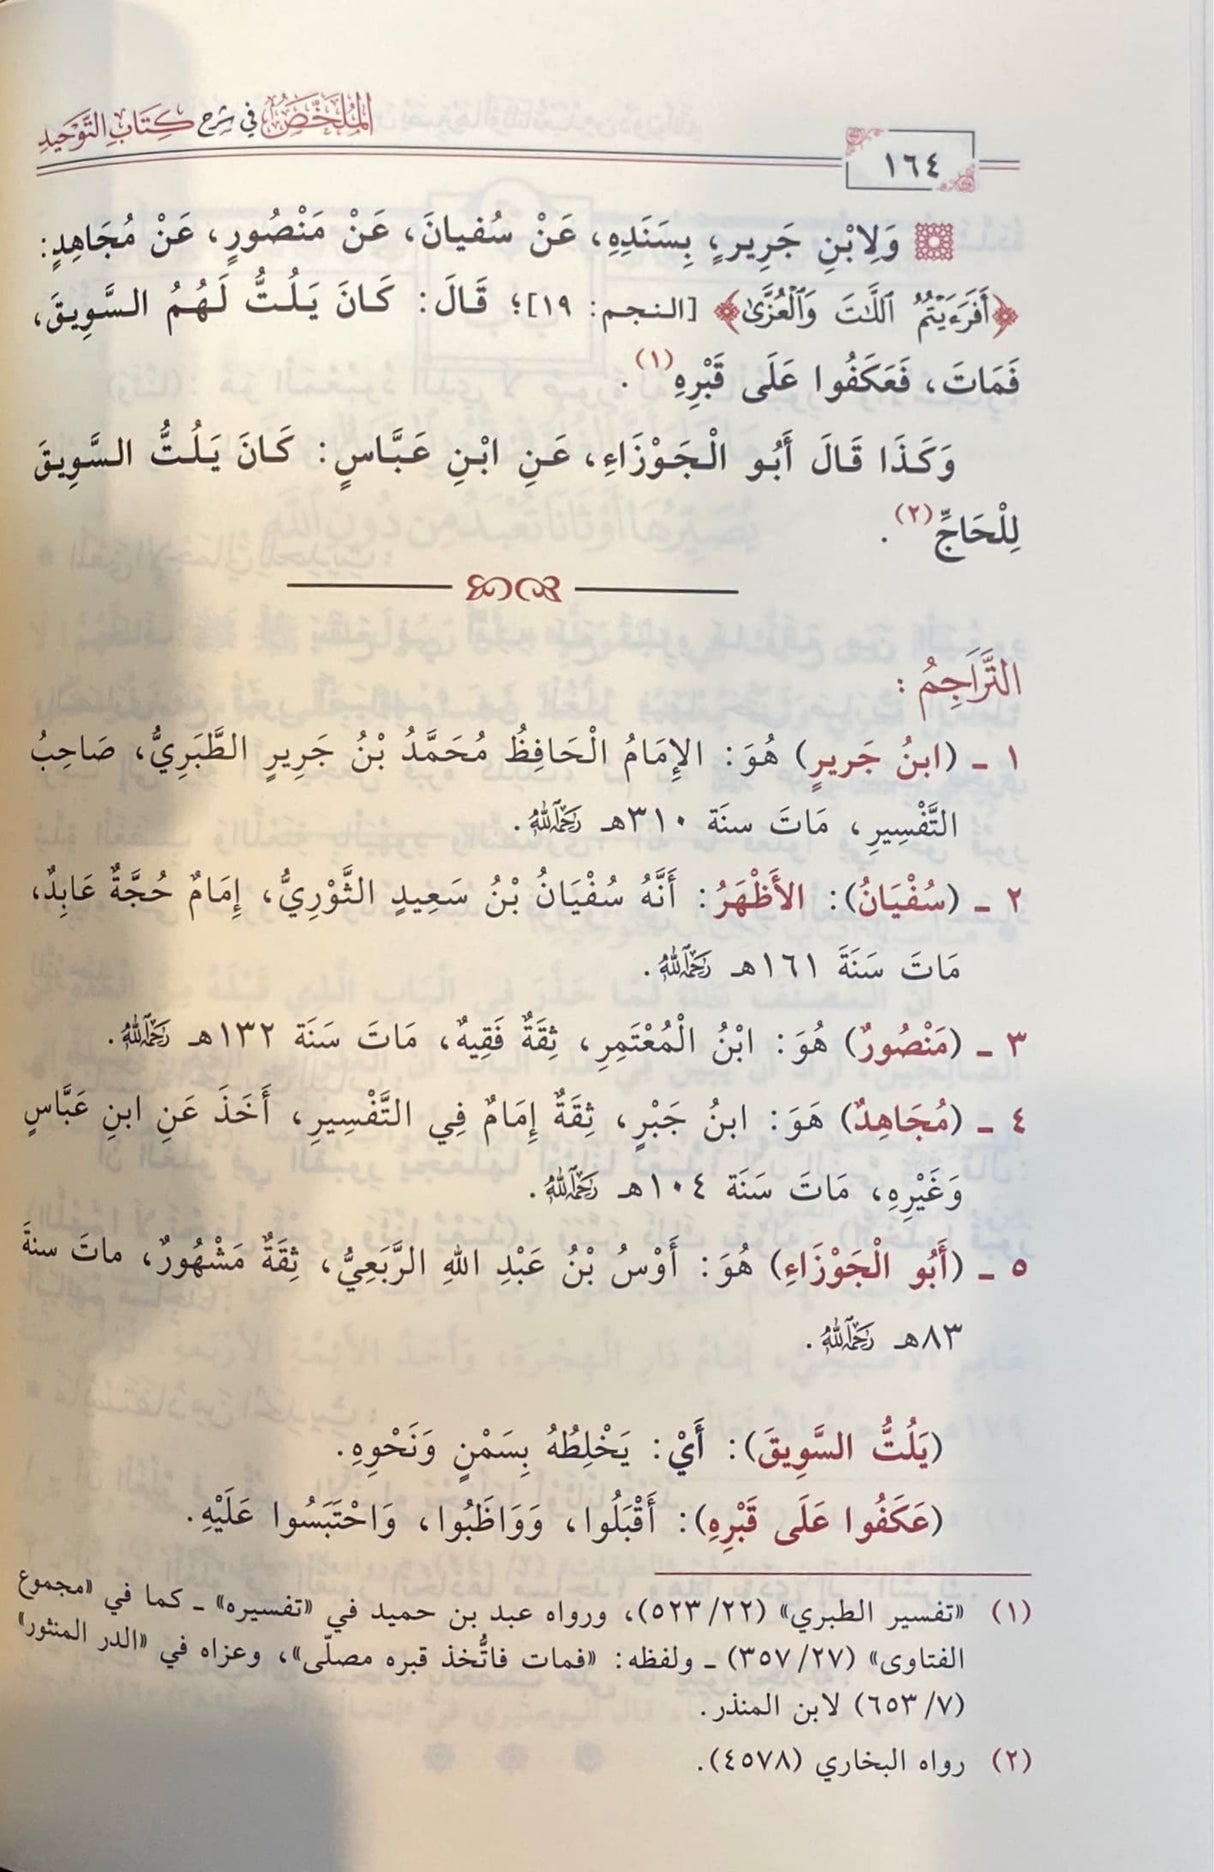 الْمُلَخَّصُ فِي شَرْحِ كِتَابِ التَّوْحِيدِ
١٦٤
وَلِابْنِ جَرِيرٍ، بِسَنَدِهِ، عَنْ سُفيانَ، عَنْ مَنْصُورٍ، عَنْ مُجَاهِدٍ:
﴿أَفَرَءَيْتُمُ ٱللَّٰتَ وَٱلْعُزَّىٰ﴾ [النجم: ١٩]؛ قَالَ: كَانَ يَلُتُّ لَهُمُ السَّوِيقَ،
فَمَاتَ، فَعَكَفُوا عَلَى قَبْرِهِ(١).
وَكَذَا قَالَ أَبُو الْجَوْزَاءِ، عَنِ ابْنِ عَبَّاسٍ: كَانَ يَلُتُّ السَّوِيقَ
لِلْحَاجِّ(٢).
التَّرَاجِمُ:
١ - (ابنُ جَريرٍ) هُوَ: الإِمَامُ الْحَافِظُ مُحَمَّدُ بْنُ جَرِيرٍ الطَّبَرِيُّ، صَاحِبُ
التَّفْسِيرِ، مَاتَ سنَة ٣١٠هـ رَحِمَهُ اللهُ.
٢ - (سُفْيَانُ): الأَظْهَرُ: أَنَّهُ سُفْيَانُ بْنُ سَعِيدٍ الثَّوْرِيُّ، إِمَامٌ حُجَّةٌ عَابِدٌ،
مَاتَ سَنَةَ ١٦١هـ رَحِمَهُ اللهُ.
٣ - (مَنْصُورٌ) هُوَ: ابْنُ الْمُعْتَمِرِ، ثِقَةٌ فَقِيهٌ، مَاتَ سَنَة ١٣٢هـ رَحِمَهُ اللهُ.
٤ - (مُجَاهِدٌ) هَوَ: ابنُ جَبْرٍ، ثِقَةٌ إِمَامٌ فِي التَّفْسِيرِ، أَخَذَ عَنِ ابنِ عَبَّاسٍ
وَغَيْرِهِ، مَاتَ سَنَة ١٠٤هـ رَحِمَهُ اللهُ.
٥ - (أَبُو الْجَوْزَاءِ) هُوَ: أَوْسُ بْنُ عَبْدِ اللهِ الرَّبَعِيُّ، ثِقَةٌ مَشْهُورٌ، ماتَ سنةَ
٨٣هـ رَحِمَهُ اللهُ.
(يَلُتُّ السَّوِيقَ): أَيْ: يَخْلِطُهُ بِسَمْنٍ وَنَحْوِهِ.
(عَكَفُوا عَلَى قَبْرِهِ): أَقْبَلُوا، وَوَاظَبُوا، وَاحْتَبَسُوا عَلَيْهِ.
(١) «تفسير الطبري» (٢٢/ ٥٢٣)، ورواه عبد بن حميد في «تفسيره» - كما في «مجموع
الفتاوى» (٢٧/ ٣٥٧) - ولفظه: «فمات فاتُّخذ قبره مصلّى»، وعزاه في «الدر المنثور»
(٧/ ٦٥٣) لابن المنذر.
(٢) رواه البخاري (٤٥٧٨).